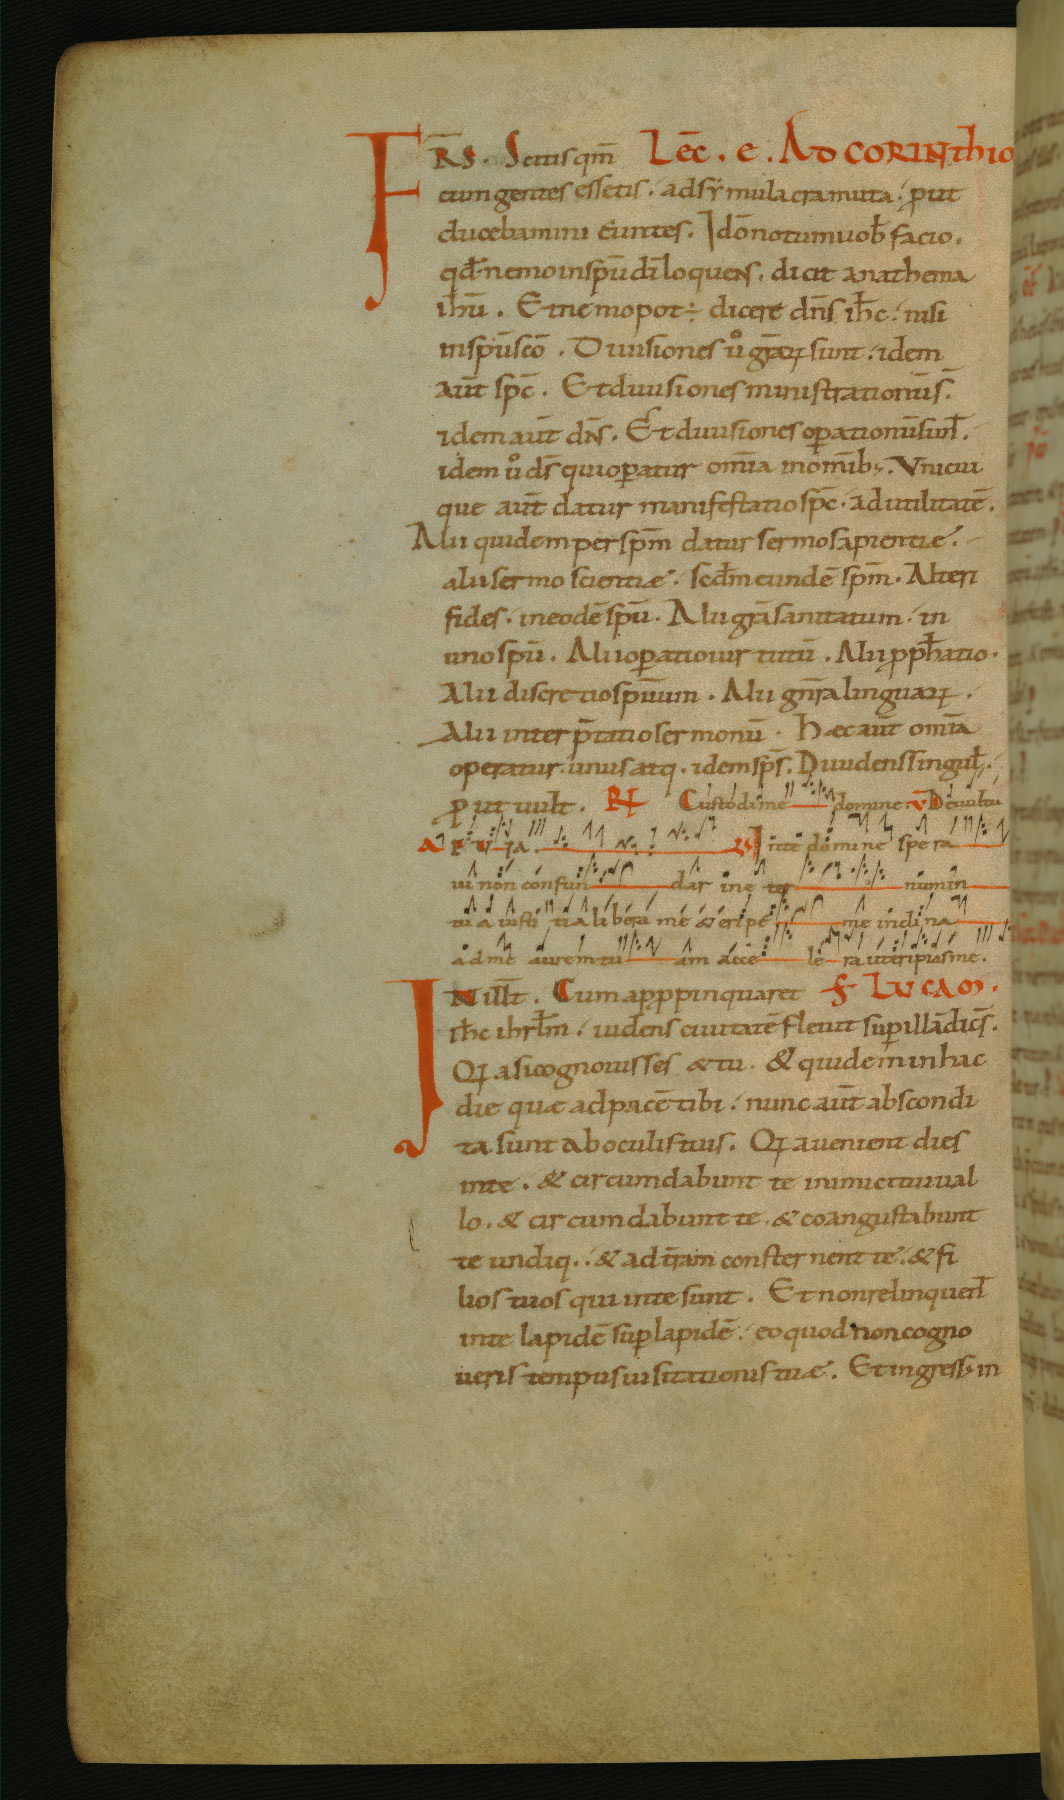 FR̄S. Scitis qm̄ Lec̄. e. AD CORINthio
cum gentes essetis. ad symulacra muta. ꝓut
ducebamini euntes. Idō notum uob̄ facio.
qđ nemo in sp̄u dī loquens. dicit anathema
ih̄u. Et nemo pot÷ dicere dn̄s ih̄c. nisi
in sp̄u scō. Diuisiones ů gr̄aꝝ sunt. idem
aut̄ sp̄c. Et diuisiones ministrationū s̄.
idem aut̄ dn̄s. Et diuisiones oꝑationū sun̄t.
idem ů ds̄ qui oꝑatur om̄ia in om̄ib;. Vnicui
que aut̄ datur manifestatio sp̄c. ad utilitatē.
Alii quidem per sp̄m datur sermo sapientiæ.
alii sermo scientiæ. scđm eundē sp̄m. Alteri
fides. in eodē sp̄u. Alii gr̄a sanitatum. in
uno sp̄u. Alii oꝑatio uirtutū. Alii ꝓph̄atio.
Alii discretio sp̄uum. Alii gn̄ra linguaꝝ.
Alii interp̄tatio sermonū. Hæc aut̄ om̄ia
operatur. unus atq. idem sp̄s. Diuidens singul̄.
ꝓ ut uult. R̄ Custodi me domine. V̄ De uultu
A E V IA. V In te domine spera
ui non confundar in eternum in
tua iusti tia libera me & eripe me inclina
ad me aurem tuam accelera ut eripias me.
IN ill̄t. Cum apꝓpinquaret s̄ LUCAM.
ih̄c ihrl̄m. uidens ciuitatē fleuit suꝑ illā dic̄s.
Qꝛ a si cognouisses & tu. & quidem in hac
die quæ ad pacē tibi. nunc aut̄ abscondi
ta sunt ab oculis tuis. Qꝛ a uenient dies
in te. & circumdabunt te inimici tui ual
lo. & circumdabunt te. & coangustabunt
te undiq.. & ad tr̄am consternent te. & fi
lios tuos qui in te sunt. Et non relinquen̄t
in te lapidē suꝑ lapidē. eo quod non cogno
ueris tempus uisitationis tuæ. Et ingress; in